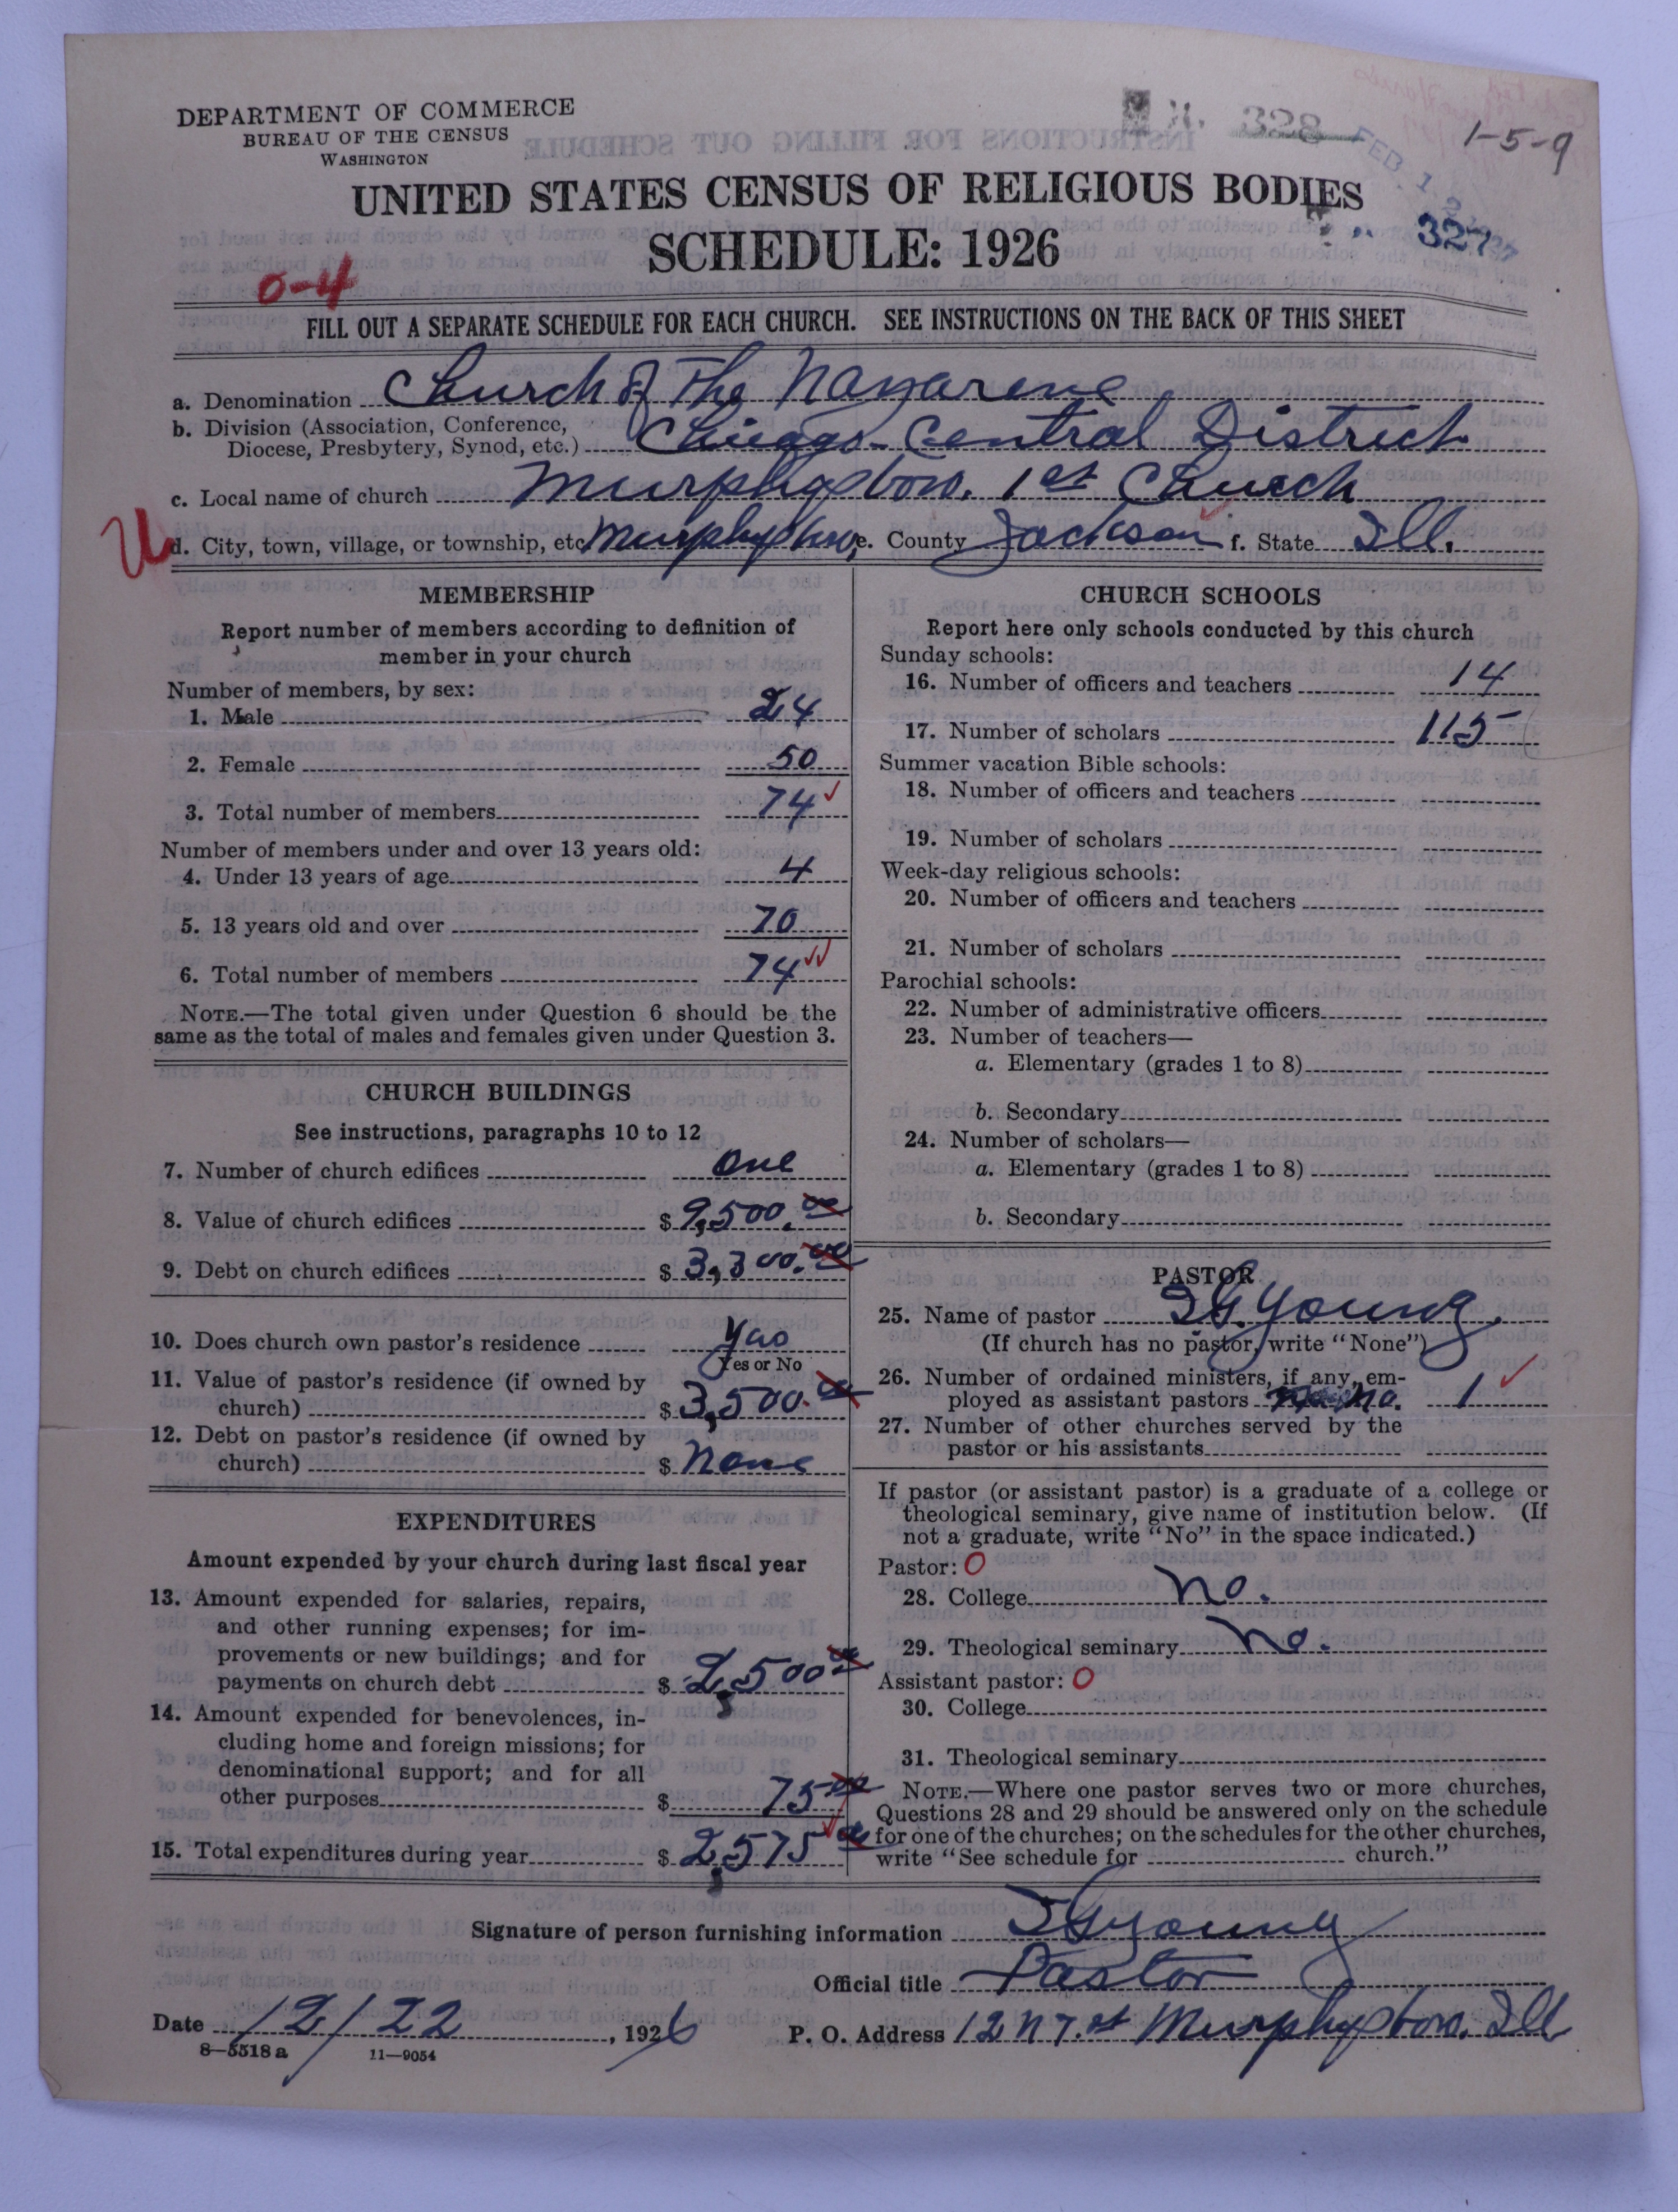 DEPARTMENT OF COMMERCE
BUREAU OF THE CENSUS
WASHINGTON
328
1-5-9
UNITED STATES CENSUS OF RELIGIOUS BODIES
SCHEDULE: 1926
327
0-4
FILL OUT A SEPARATE SCHEDULE FOR EACH CHURCH. SEE INSTRUCTIONS ON THE BACK OF THIS SHEET
a. Denomination Church of The Nazarene
b. Division (Association, Conference,
Diocese, Presbytery, Synod, etc.) Chicago-Central District
c. Local name of church Murphysboro. 1st Church
U
d. City, town, village, or township, etc. Murphysboro, e. County Jackson f. State Ill.
MEMBERSHIP
Report number of members according to definition of
member in your church
Number of members, by sex:
1. Male 24
2. Female 50
3. Total number of members 74 ✓
Number of members under and over 13 years old:
4. Under 13 years of age 4
5. 13 years old and over 70
6. Total number of members 74 ✓✓
NOTE.—The total given under Question 6 should be the
same as the total of males and females given under Question 3.
CHURCH BUILDINGS
See instructions, paragraphs 10 to 12
7. Number of church edifices one
8. Value of church edifices $ 9,500.00
9. Debt on church edifices $ 3,300.00
10. Does church own pastor's residence yes
Yes or No
11. Value of pastor's residence (if owned by
church) $ 3,500.00
12. Debt on pastor's residence (if owned by
church) $ None
EXPENDITURES
Amount expended by your church during last fiscal year
13. Amount expended for salaries, repairs,
and other running expenses; for im-
provements or new buildings; and for
payments on church debt $ 2,500 00
14. Amount expended for benevolences, in-
cluding home and foreign missions; for
denominational support; and for all
other purposes $ 75 00
15. Total expenditures during year $ 2,575 00
CHURCH SCHOOLS
Report here only schools conducted by this church
Sunday schools:
16. Number of officers and teachers 14
17. Number of scholars 115
Summer vacation Bible schools:
18. Number of officers and teachers
19. Number of scholars
Week-day religious schools:
20. Number of officers and teachers
21. Number of scholars
Parochial schools:
22. Number of administrative officers
23. Number of teachers—
a. Elementary (grades 1 to 8)
b. Secondary
24. Number of scholars—
a. Elementary (grades 1 to 8)
b. Secondary
PASTOR
25. Name of pastor I G. Young.
(If church has no pastor, write "None")
26. Number of ordained ministers, if any, em-
ployed as assistant pastors no. 1 ✓
27. Number of other churches served by the
pastor or his assistants
If pastor (or assistant pastor) is a graduate of a college or
theological seminary, give name of institution below. (If
not a graduate, write "No" in the space indicated.)
Pastor: 0
28. College no.
29. Theological seminary no.
Assistant pastor: 0
30. College
31. Theological seminary
NOTE.—Where one pastor serves two or more churches,
Questions 28 and 29 should be answered only on the schedule
for one of the churches; on the schedules for the other churches,
write "See schedule for church."
Signature of person furnishing information I G Young
Official title Pastor
Date 12/22, 1926 P. O. Address 12 N 7. st Murphysboro. Ill
8—5518a 11—9054